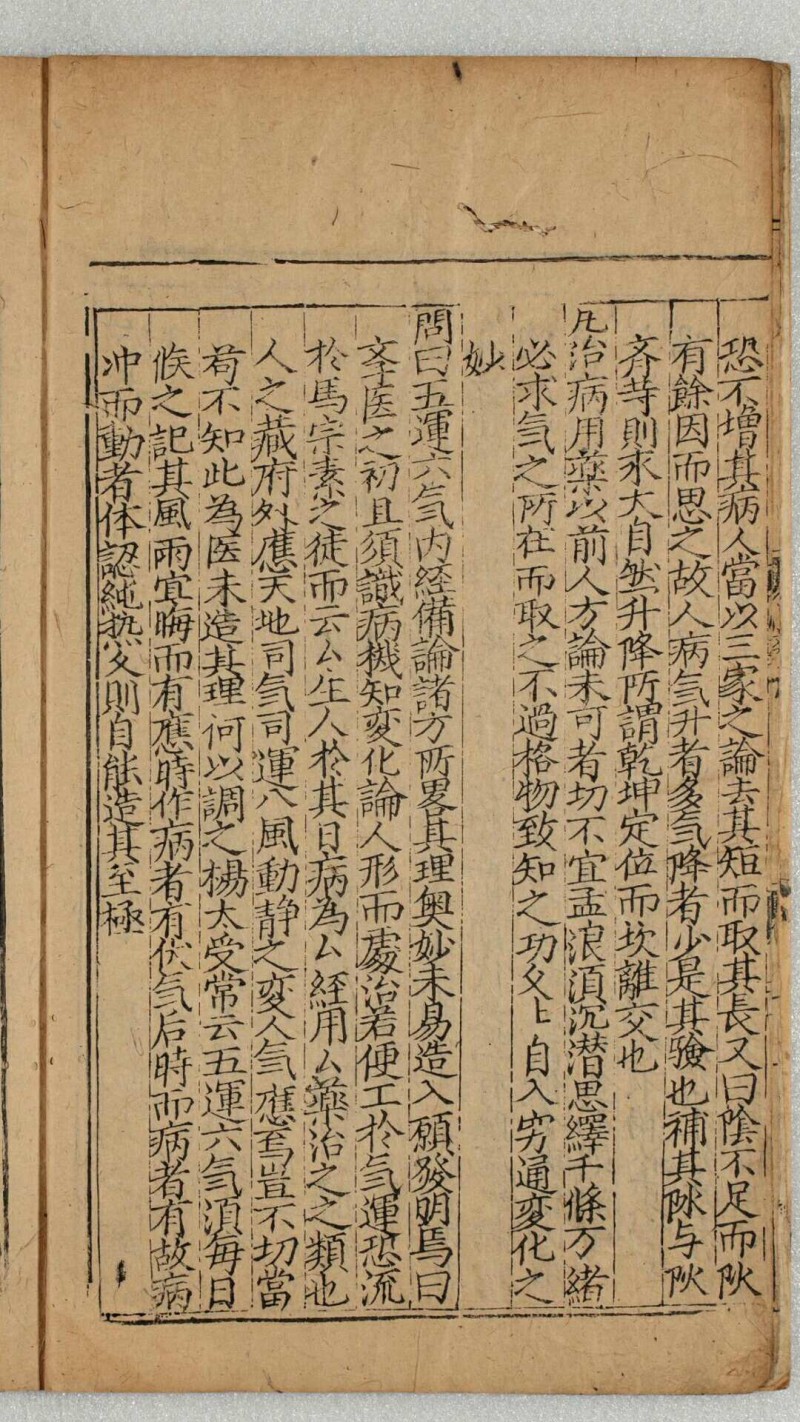 恐不增其病人當以三家之論去其短而取其長又曰陰不足而阦
有餘因而思之故人病気升者多気降者少是其驗也補其阥与阦
齐䓁則求大自然升降所謂乾坤定位而坎離交也
凢治病用藥以前人方論未可者切不宜孟浪湏沉潜思繹千條万緒
必求気之所在而取之不過格物致知之功久〻自入穷通変化之
妙
問曰五運六気内経備論諸方所畧其理奥妙未易造入碩發明焉曰
孝医之初且須識病機知変化論人形而處治若便工於気運恐流
於馬宗素之徒而云厶生人於其日病為厶経用厶藥治之之類也
人之藏府外應天地司気司運八風動静之変人気應焉豈不切當
苟不知此為医未造其理何以調之楊太受常云五運六気湏每日
候之記其風雨宜晦而有應時作病者有伏気后時而病者有故病
冲而動者体認純熟久則自能造其至極